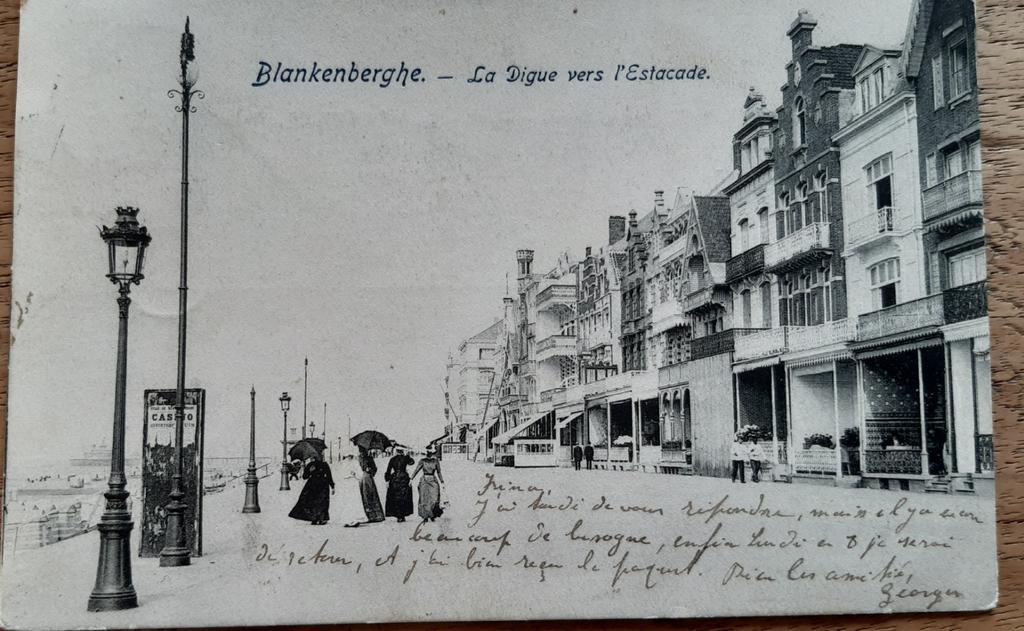 Blankenberghe. – La Digue vers l'Estacade.
CASINO
Irina,
J'ai tardé de vous répondre, mais il y a eu
beaucoup de besogne, enfin lundi en 8 je serai
de retour, et j'ai bien reçu le paquet. Bien les amitiés,
Georges